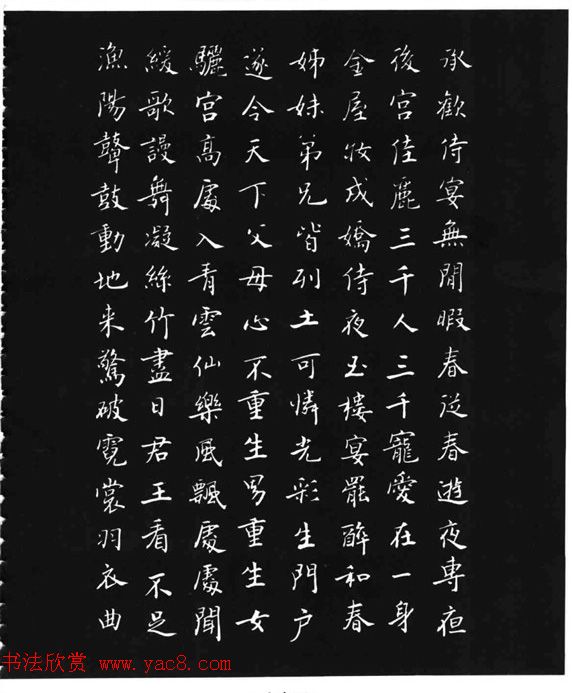 承歡侍宴無閒暇春從春遊夜專夜
後宮佳麗三千人三千寵愛在一身
金屋妝成嬌侍夜玉樓宴罷醉和春
姊妹弟兄皆列土可憐光彩生門户
遂令天下父母心不重生男重生女
驪宮高處入青雲仙樂風飄處處聞
緩歌謾舞凝絲竹盡日君王看不足
漁陽鼙鼓動地来驚破霓裳羽衣曲
书法欣赏 www.yac8.com